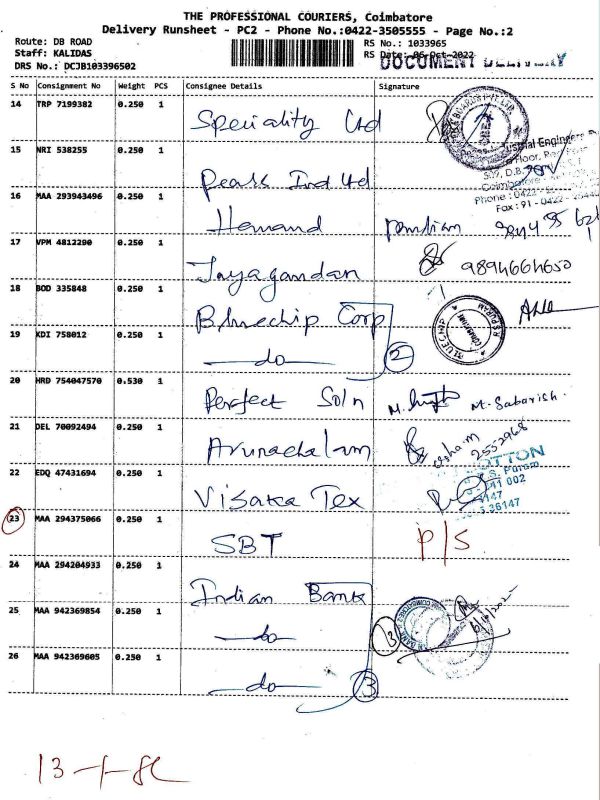 THE PROFESSIONAL COURIERS, Coimbatore
Delivery Runsheet - PC2 - Phone No.:0422-3505555 - Page No.:2
Route: DB ROAD
Staff: KALIDAS
DRS No.: DCJB103396502
RS No.: 1033965
RS Date: 06-Oct-2022
DOCUMENT DELIVERY
S No Consignment No Weight PCS Consignee Details Signature
14 TRP 7199382 0.250 1 Speciality Ltd
15 NRI 538255 0.250 1 Pearl Ind Ltd
Floor,
Coimbatore
Phone : 0422
Fax : 91 - 0422
16 MAA 293943496 0.250 1 Hemand
17 VPM 4812290 0.250 1 Jayagandan 9894664650
18 BOD 335848 0.250 1 Bluechip Corp
19 KDI 758012 0.250 1 do 2
BLUECHIP
COIMBATORE
R S PURAM
20 HRD 754047570 0.530 1 Perfect Soln M. Sabarish
21 DEL 70092494 0.250 1 Arunachalam 2552968
22 EDQ 47431694 0.250 1 Visaka Tex
COTTON
S. Puram
641 002
23 MAA 294375066 0.250 1 SBT P/S
24 MAA 294204933 0.250 1 Indian Bank
25 MAA 942369854 0.250 1 do 3
26 MAA 942369605 0.250 1 do 3